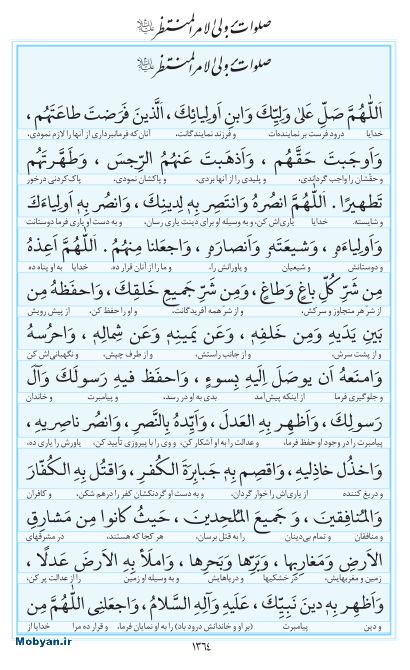 صلوات بر ولی الامر المنتظر علیه السلام
صلوات بر ولی الامر المنتظر علیه السلام
اَللّٰهُمَّ صَلِّ عَلىٰ وَلِيِّكَ وَابنِ اَولِيائِكَ، الَّذينَ فَرَضتَ طاعَتَهُم،
خدایا درود فرست بر نماینده‌ات و فرزند نمایندگانت، آنان‌که فرمانبرداری از آنها را لازم نمودی،
وَاَوجَبتَ حَقَّهُم، وَاَذهَبتَ عَنهُمُ الرِّجسَ، وَطَهَّرتَهُم
و حقّشان را واجب گرداندی، و پلیدی را از آنها بردی، و پاکشان نمودی، پاک‌کردنی درخور
تَطهيرًا. اَللّٰهُمَّ انصُرهُ وَانتَصِر بِهِ لِدينِكَ، وَانصُر بِهِ اَولِياءَكَ
و شایسته. خدایا یاری‌اش کن، و به وسیله او برای دینت یاری رسان، و به دست او یاری فرما دوستانت
وَاَولِياءَهُ، وَشيعَتَهُ وَاَنصارَهُ، وَاجعَلنا مِنهُم. اَللّٰهُمَّ اَعِذهُ
و دوستانش و شیعیان و یاورانش را، و ما را از آنان قرار ده. خدایا به او پناه ده
مِن شَرِّ كُلِّ باغٍ وَطاغٍ، وَمِن شَرِّ جَميعِ خَلقِكَ، وَاحفَظهُ مِن
از شر هر متجاوز و سرکش، و از شر همه آفریدگانت، و او را حفظ کن، از پیش رویش
بَينِ يَدَيهِ وَمِن خَلفِهِ، وَعَن يَمينِهِ وَعَن شِمالِهِ، وَاحرُسهُ
و از پشت سرش، و از جانب راستش، و از طرف چپش، و نگهبانی‌اش کن
وَامنَعهُ اَن يوصَلَ اِلَيهِ بِسوءٍ، وَاحفَظ فيهِ رَسولَكَ وَآلَ
و جلوگیری فرما از اینکه پیش‌آمد بدی به او در رسد، و پیامبرت و خاندان
رَسولِكَ، وَاَظهِر بِهِ العَدلَ، وَاَيِّدهُ بِالنَّصرِ، وَانصُر ناصِريهِ،
پیامبرت را در وجود او حفظ فرما، و عدالت را به او آشکار کن، و وی را با پیروزی تأیید کن، یاورش را یاری ده،
وَاخذُل خاذِليهِ، وَاقصِم بِهِ جَبابِرَةَ الكُفرِ، وَاقتُل بِهِ الكُفّارَ
و دریغ کننده از یاری‌اش را خوار گردان، و به دست او گردنکشان کفر را درهم شکن، و کافران
وَالمُنافِقينَ، وَ جَميعَ المُلحِدينَ، حَيثُ كانوا مِن مَشارِقِ
و منافقان و تمام بی‌دینان را به قتل برسان، هر کجا که هستند، در مشرقهای
الاَرضِ وَمَغارِبِها، وَبَرِّها وَبَحرِها، وَاملَأ بِهِ الاَرضَ عَدلًا،
زمین و مغربهایش، در خشکیها و دریاهایش، و به وسیله او زمین را از عدالت پر کن،
وَاَظهِر بِهِ دينَ نَبِيِّكَ، عَلَيهِ وَآلِهِ السَّلامُ، وَاجعَلنِي اللّٰهُمَّ مِن
و دین پیامبرت (بر او و خاندانش درود باد) را به او نمایان فرما، و قرار ده مرا خدایا از
١٣٦٤
Mobyan.ir